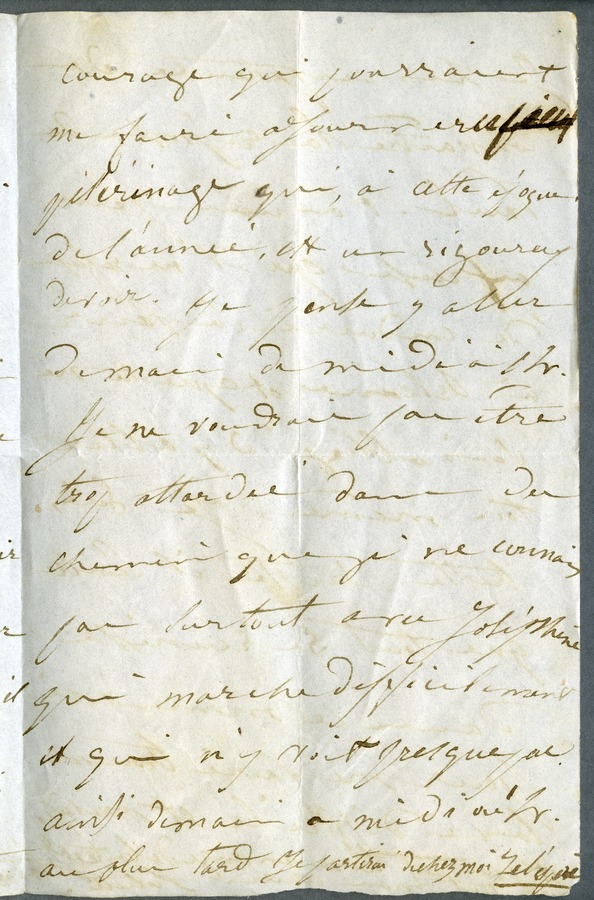 courage qui pourraient
me faire ajourner un
pélérinage qui, à cette époque
de l'année, est un rigoureux
devoir. Je pense y aller
demain de midi à 1 hr.
Je ne voudrais pas être
trop attardée dans des
chemins que je ne connais
pas surtout avec Joséphine
qui marche difficilement
et qui n'y voit presque pas.
ainsi demain à midi
au plus tard je partirai de chez moi